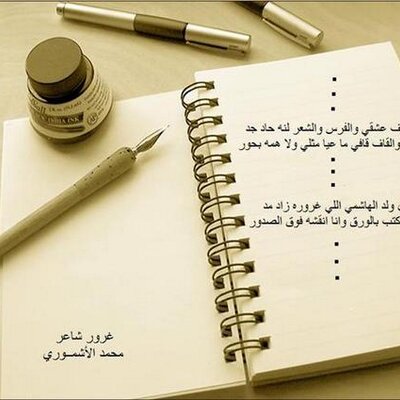 ف عشقي والفرس والشعر لنه حاد جد
والقاف قافي ما عيا مثلي ولا همه بحور
ولد الهاشمي اللي غروره زاد مد
كتب بالورق وانا انقشه فوق الصدور
غرور شاعر
محمد الأشمــوري